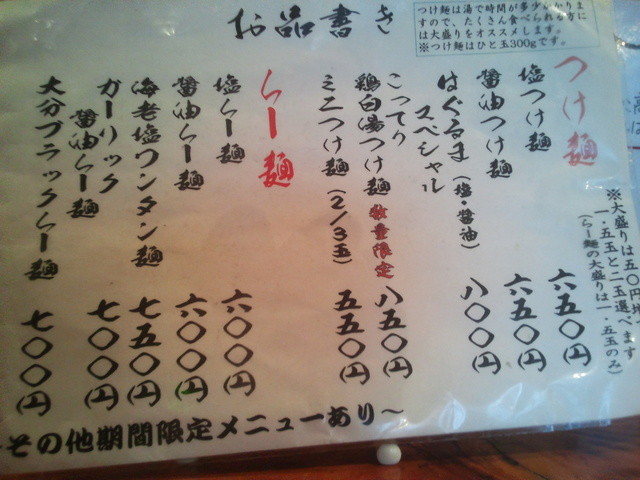 お品書き
つけ麺は湯で時間が多少かかりま
すので、たくさん食べられる方に
は大盛りをオススメします。
※つけ麺はひと玉300gです。
つけ麺
※大盛りは五〇円増
一・五玉と二玉選べます
(らー麺の大盛りは一・五玉のみ)
塩つけ麺 六五〇円
醤油つけ麺 六五〇円
はぐるま(塩・醤油)
スペシャル 八〇〇円
こってり
鶏白湯つけ麺 数量限定 八五〇円
ミニつけ麺(2/3玉) 五五〇円
らー麺
塩らー麺 六〇〇円
醤油らー麺 六〇〇円
海老塩ワンタン麺 七五〇円
ガーリック
醤油らー麺 七〇〇円
大分ブラックらー麺 七〇〇円
その他期間限定メニューあり〜